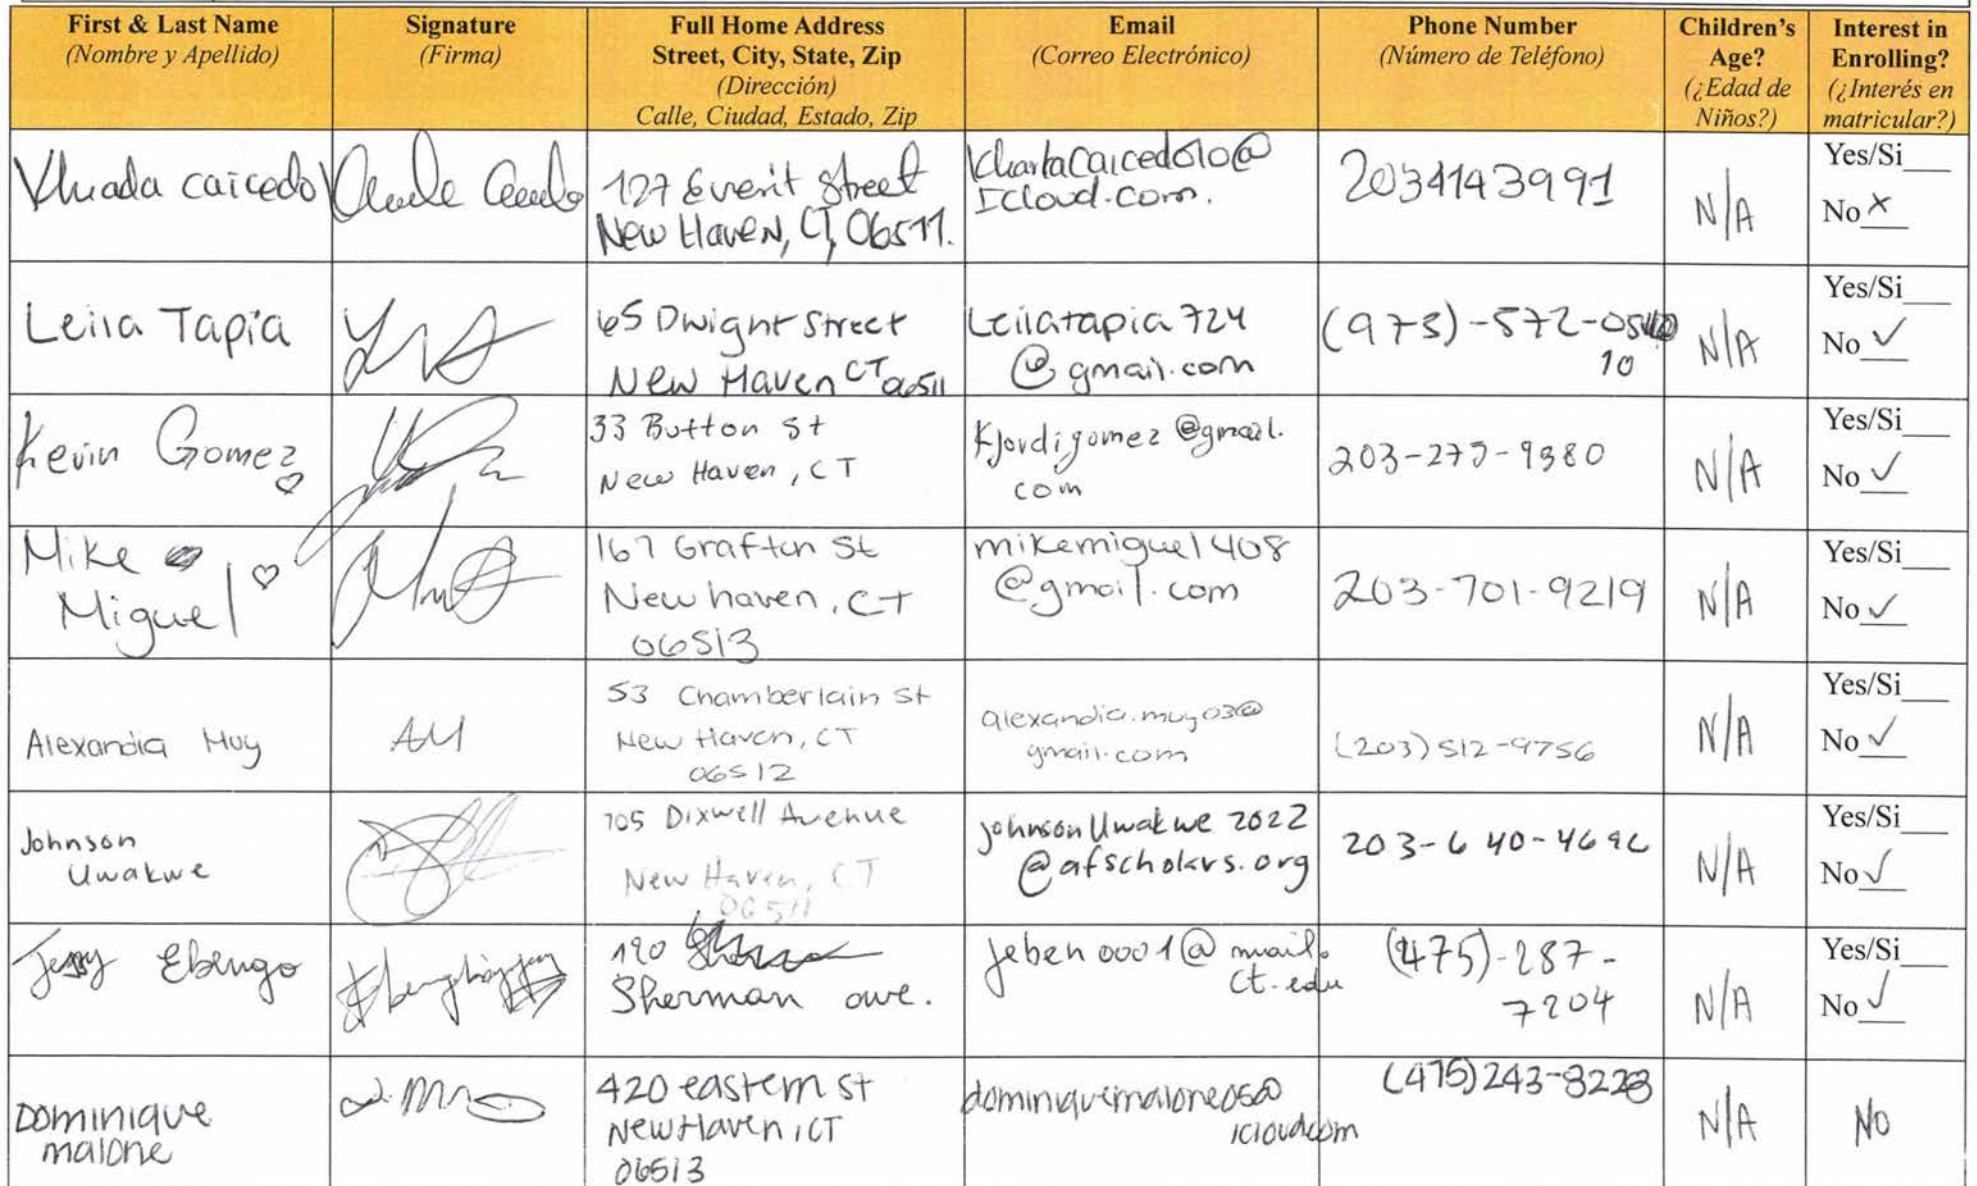 First & Last Name
(Nombre y Apellido)
Signature
(Firma)
Full Home Address
Street, City, State, Zip
(Dirección)
Calle, Ciudad, Estado, Zip
Email
(Correo Electrónico)
Phone Number
(Número de Teléfono)
Children's
Age?
(¿Edad de
Niños?)
Interest in
Enrolling?
(¿Interés en
matricular?)
caicedo
127 Everit Street
New Haven, CT, 06511.
Icloud.com.
2034143991
N/A
Yes/Si
No X
Leila Tapia
65 Dwight Street
New Haven CT 06511
Leilatapia 724
@gmail.com
(973)-572-05
10
N/A
Yes/Si
No ✓
Kevin Gomez
33 Button St
New Haven, CT
Kjordigomez @gmail.
com
N/A
Yes/Si
No ✓
Mike
Miguel
167 Grafton St
New haven, CT
06513
mikemiguel408
@gmail.com
203-701-9219
N/A
Yes/Si
No ✓
Alexandia Muy
AM
53 Chamberlain St
New Haven, CT
06512
alexandia.muy03@
gmail.com
(203)512-9756
N/A
Yes/Si
No ✓
Johnson
Uwakwe
105 Dixwell Avenue
New Haven, CT
06511
johnsonUwakwe 2022
@afscholars.org
203-640-4696
N/A
Yes/Si
No ✓
Ebengo
190
Sherman ave.
jeben0001@mail.
ct.edu
(475)-287-
7204
N/A
Yes/Si
No ✓
Dominique
malone
420 eastern st
New Haven, CT
06513
dominiquemalone05@
icloud.com
(475)243-8223
N/A
No